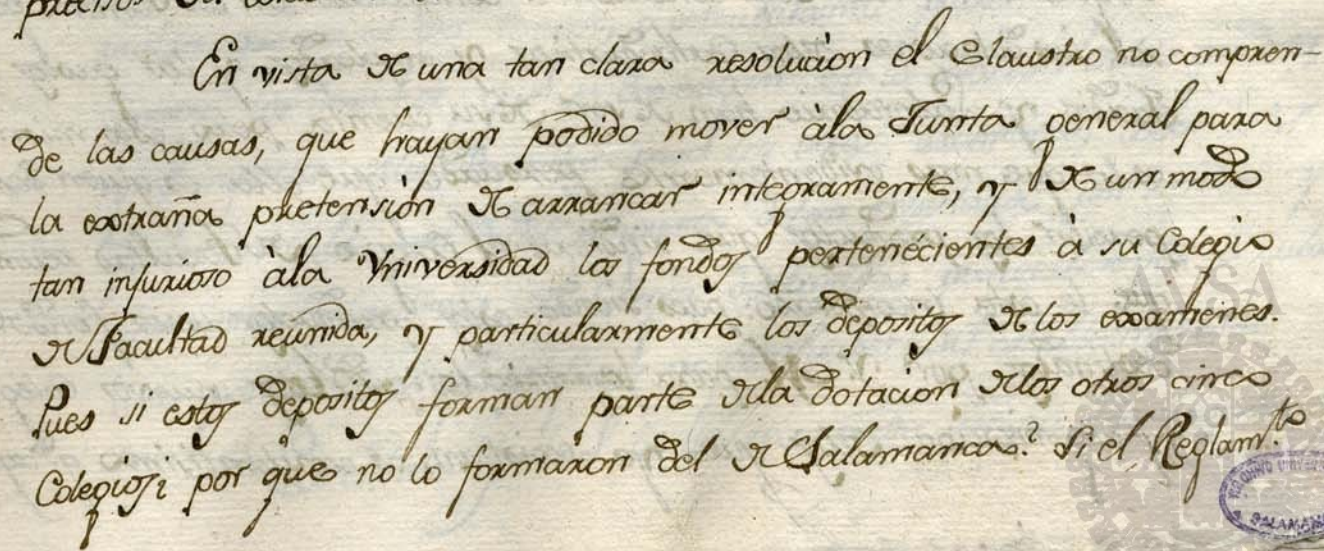 En vista de una tan clara resolucion el Claustro no compren-
de las causas, que hayan podido mover àla Junta general para
la extraña pretension de arrancar integramente, y de un modo
tan injurioso àla Vniversidad los fondos pertenecientes à su Colegio
de Facultad reunida, y particularmente los depositos de los examenes.
Pues si estos depositos forman parte dela dotacion delos otros cinco
Colegios ¿ por que no lo formaron del de Salamanca? Si el Reglam.to
AUSA
SALAMANCA